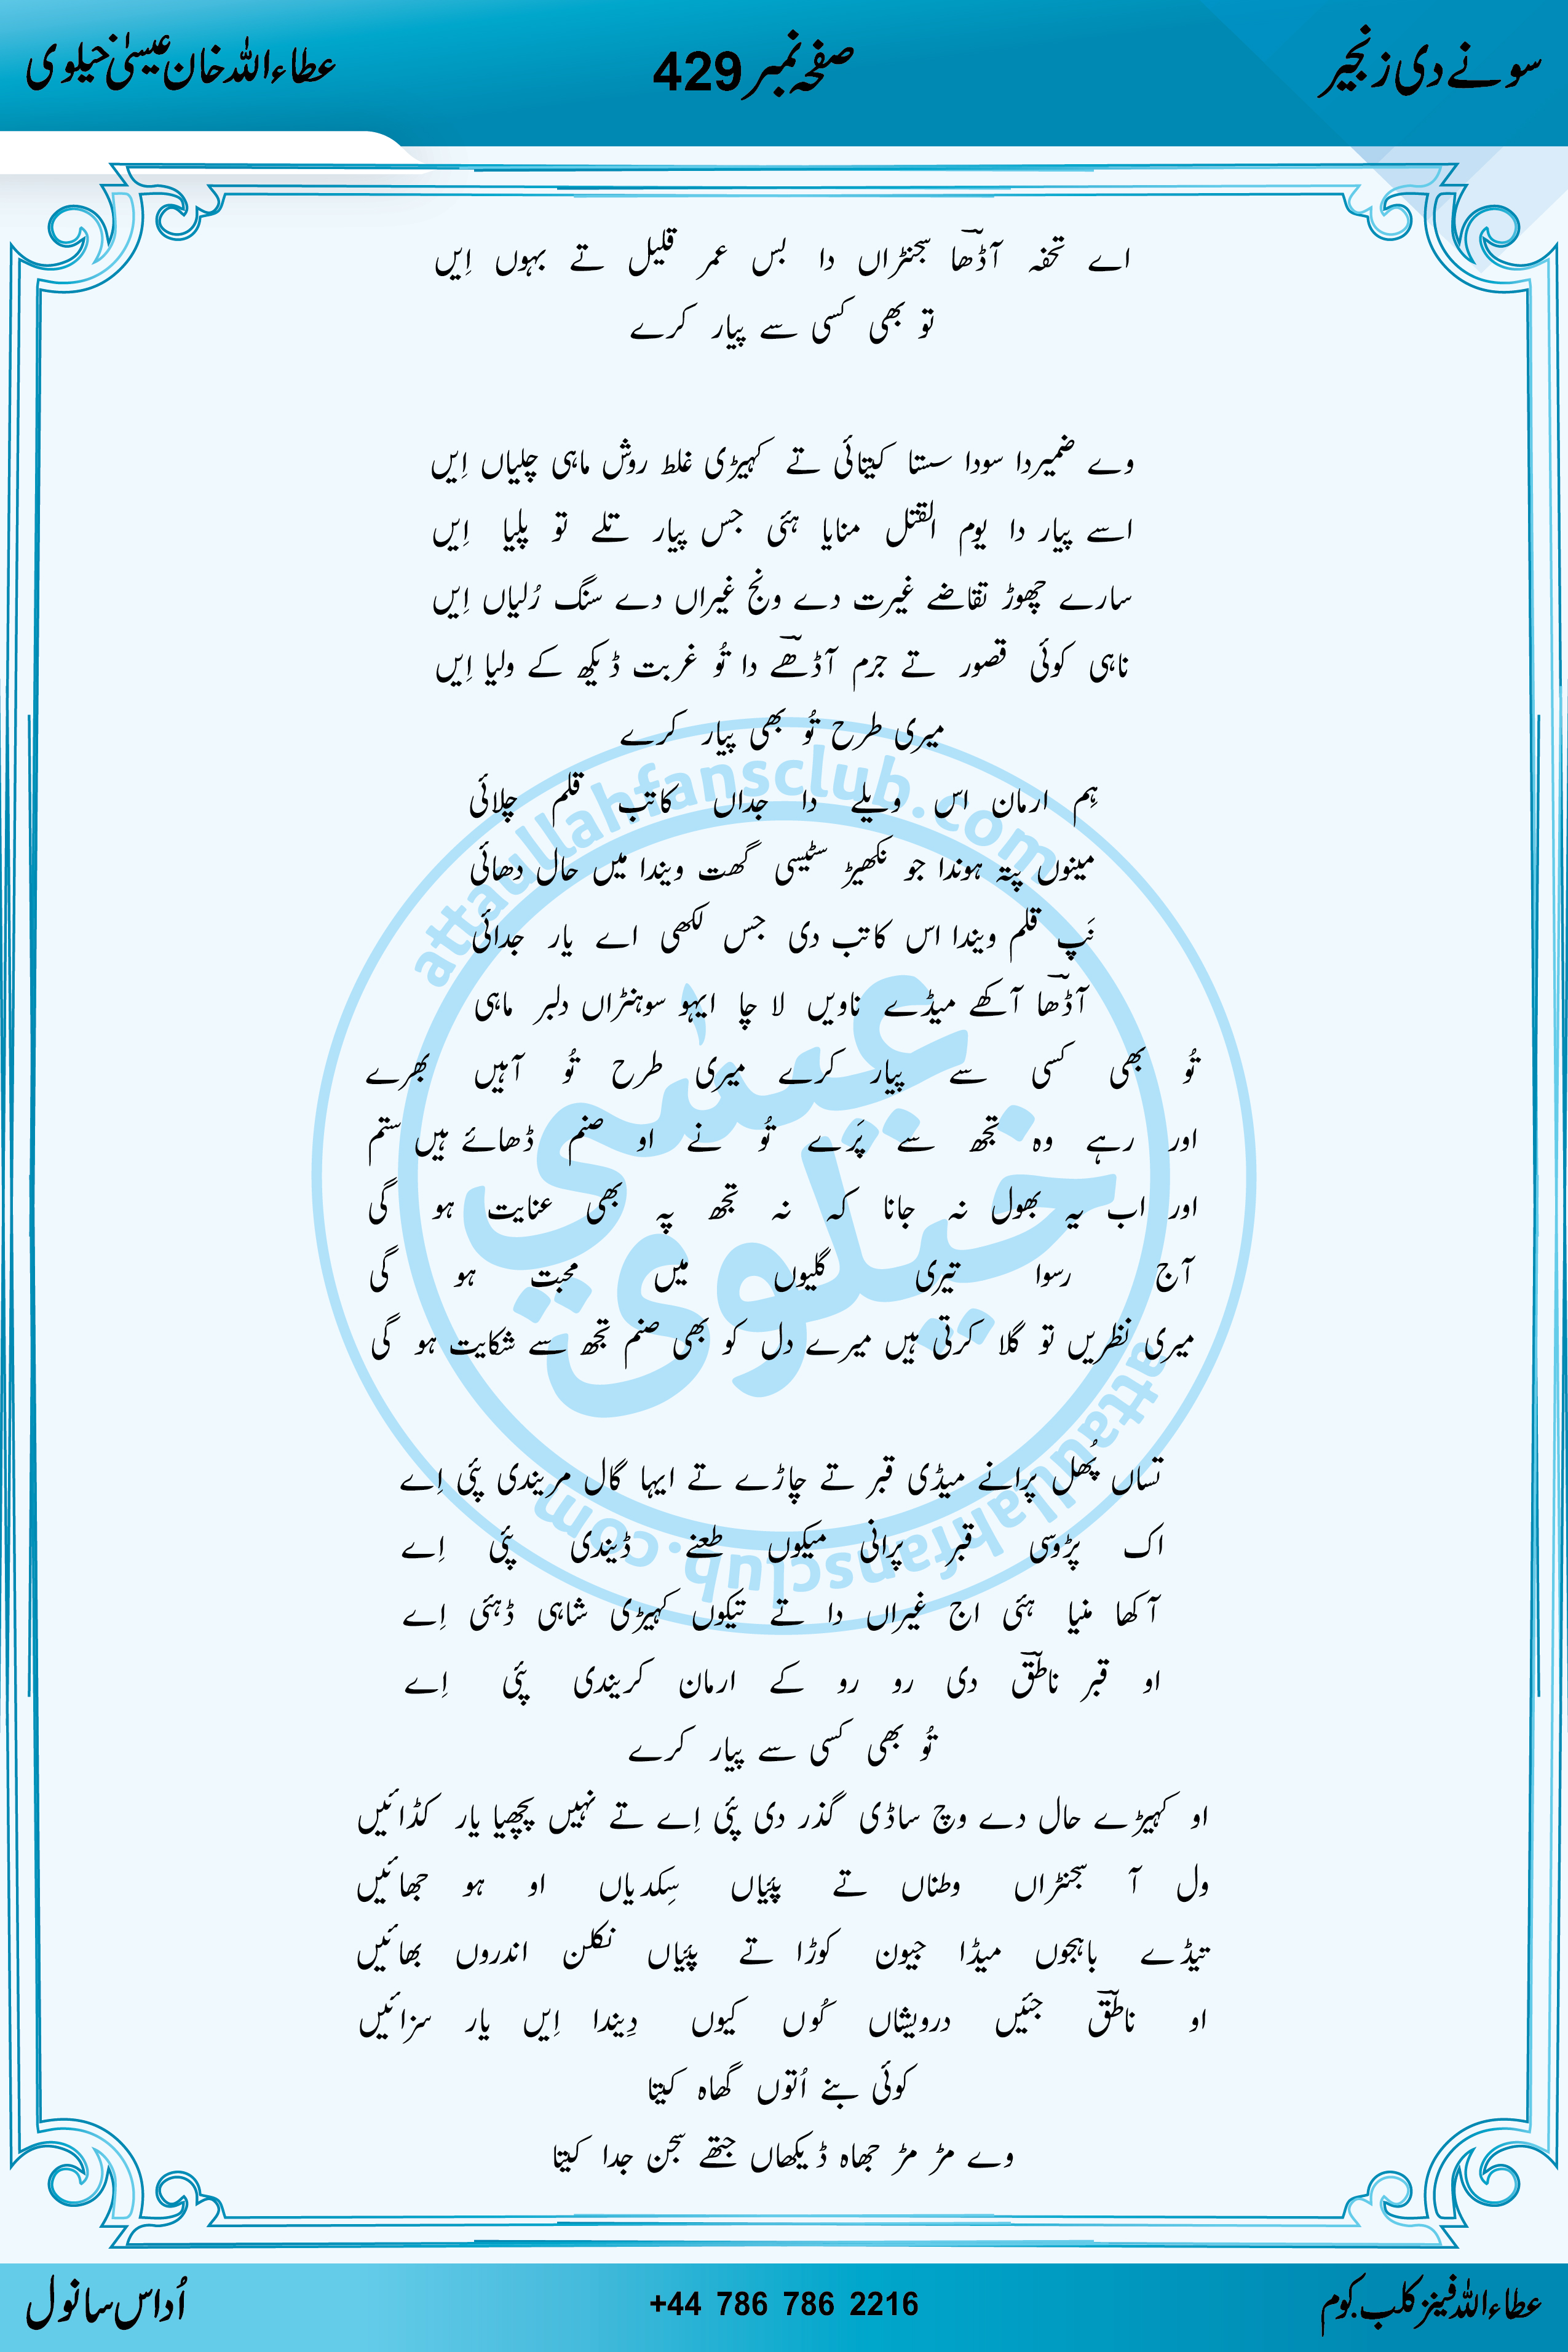 سونے دی زنجیر
صفحہ نمبر 429
عطاء اللہ خان عیسیٰ خیلوی
اے تحفہ آڈھا سجنڑاں دا بس عمر قلیل تے بہوں اِیں
تو بھی کسی سے پیار کرے
وے ضمیردا سودا سستا کیتائی تے کہیڑی غلط روش ماہی چلیاں اِیں
اسے پیار دا یوم القتل منایا ہئی جس پیار تلے تو پلیا اِیں
سارے چھوڑ تقاضے غیرت دے ونج غیراں دے سنگ رُلیاں اِیں
ناہی کوئی قصور تے جرم آڈھے دا تُو غربت ڈیکھ کے ولیا اِیں
میری طرح تُو بھی پیار کرے
ہِم ارمان اس ویلے دا جداں کاتب قلم چلائی
مینوں پتہ ہوندا جو نکھیڑ سٹیسی گھت ویندا میں حال دھائی
نَپ قلم ویندا اس کاتب دی جس لکھی اے یار جدائی
آڈھا آکھے میڈے ناویں لا چا ایہو سوہنڑاں دلبر ماہی
تُو بھی کسی سے پیار کرے میری طرح تُو آہیں بھرے
اور رہے وہ تجھ سے پَرے تُو نے او صنم ڈھائے ہیں ستم
اور اب یہ بھول نہ جانا کہ نہ تجھ پہ بھی عنایت ہو گی
آج رسوا تیری گلیوں میں محبت ہو گی
میری نظریں تو گلا کرتی ہیں میرے دل کو بھی صنم تجھ سے شکایت ہو گی
تساں پُھل پرانے میڈی قبر تے چاڑے تے ایہا گال مریندی پئی اِے
اک پڑوسی قبر پرانی میکوں طعنے ڈیندی پئی اِے
آکھا منیا ہئی اج غیراں دا تے تیکوں کہیڑی شاہی ڈہئی اِے
او قبر ناطقؔ دی رو رو کے ارمان کریندی پئی اِے
تُو بھی کسی سے پیار کرے
او کہیڑے حال دے وچ ساڈی گذر دی پئی اِے تے نہیں پچھیا یار کڈائیں
ول آ سجنڑاں وطناں تے پئیاں سِکدیاں او ہو جھائیں
تیڈے باہجوں میڈا جیون کوڑا تے پئیاں نکلن اندروں بھائیں
او ناطقؔ جئیں درویشاں کُوں کیوں دِیندا اِیں یار سزائیں
کوئی بنے اُتوں گھاہ کیتا
وے مڑ مڑ جھاہ ڈیکھاں جتھے سجن جدا کیتا
عطاء اللہ فینز کلب.کوم
+44 786 786 2216
اُداس سانول
attaullahfansclub.com
عیسیٰ
خیلوی
attaullahfansclub.com